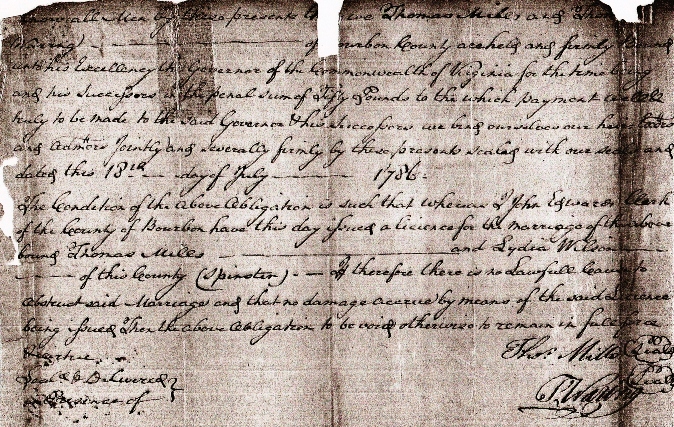 Know all Men by these presents that we Thomas Miles and Tho
Waring of Bourbon County are held and firmly bound
unto his Excellency the Governor of the Commonwealth of Virginia for the time being
and his Successors in the penal sum of Fifty Pounds to the which payment well &
truly to be made to the said Governor & his Successors we bind ourselves our heirs
and Admors Jointly and severally firmly by these presents sealed with our seals and
dated this 18th day of July 1786.
The Condition of the above Obligation is such that whereas I John Edwards Clerk
of the County of Bourbon have this day issued a licence for the marriage of the above
bound Thomas Miles and Lydia Wilson
of this County (Spinster) If therefore there is no Lawfull cause to
obstruct said Marriage and that no damage accrue by means of the said Licence
being issued Then the above Obligation to be void otherwise to remain in full force
& virtue.
Seal'd & Delivered }
in Presence of
Thos. Miles
T. Waring